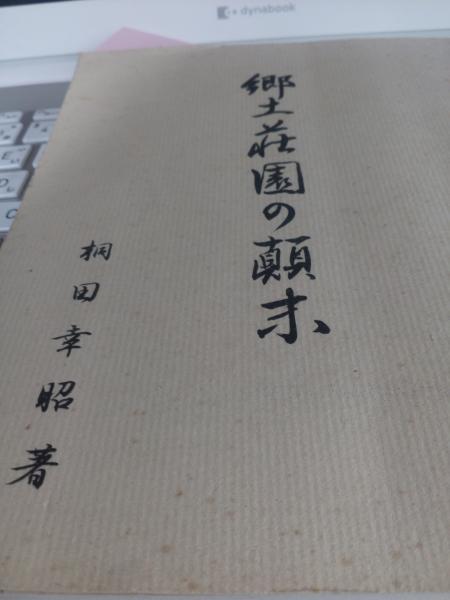 dynabook
郷土荘園の顛末
桐田幸昭著